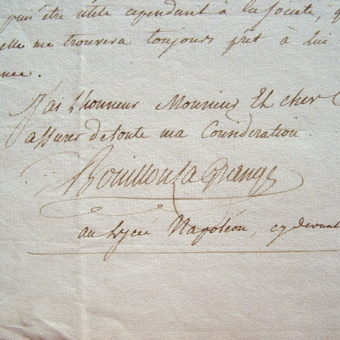 puis être utile cependant à la Société, q
elle me trouvera toujours prêt a lui
nce.
J'ai l'honneur Monsieur Et cher C
assurer de toute ma Considération.
Bouillon La Grange
au Lycée Napoléon, cy devant